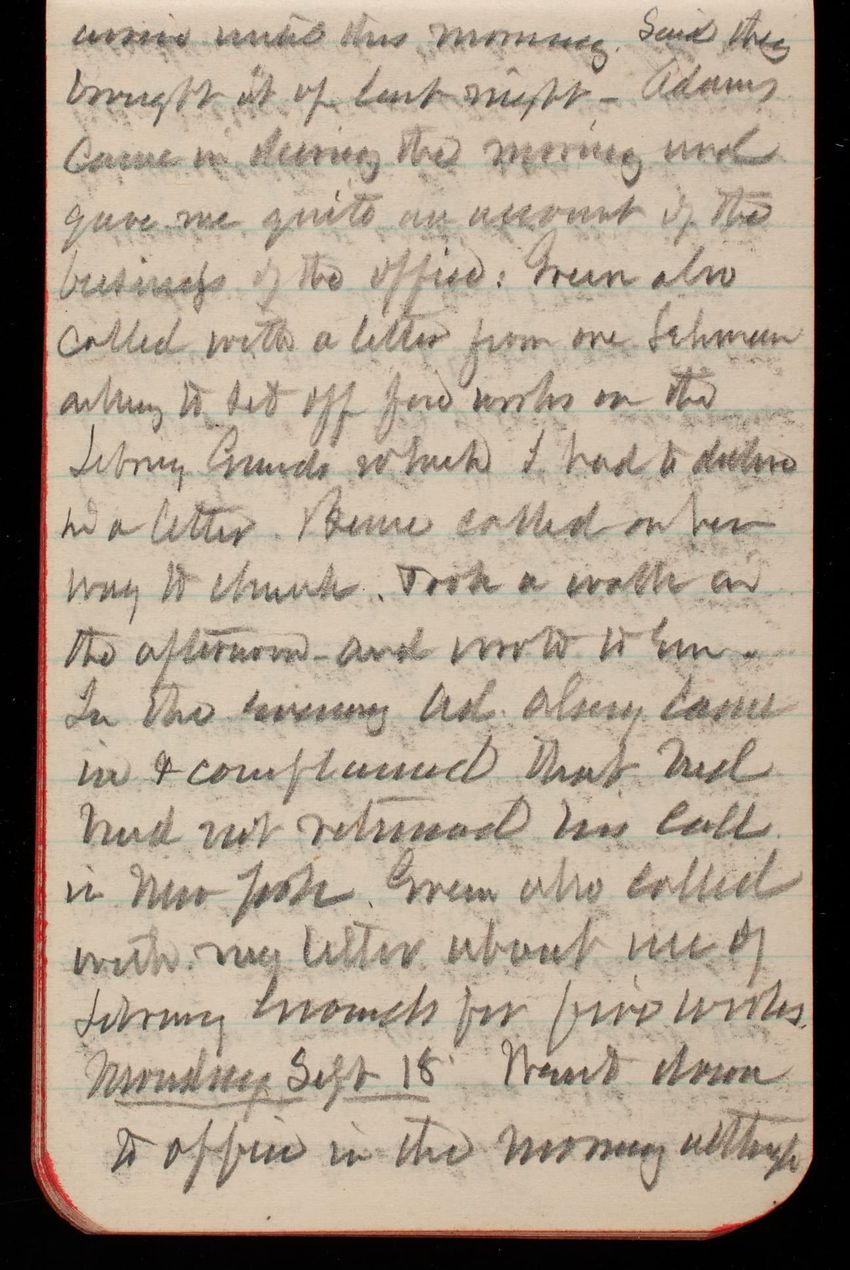 arrive until this morning. Said they
brought it up last night - Adams
came in during the morning and
gave me quite an account of the
business of the office: Green also
called with a letter from one
asking to set off fire works on the
Library Grounds which I had to decline
in a letter. called on her
way to church. Took a walk in
the afternoon - and wrote to Em -
In the evening came
in & complained that Ned
had not returned his call
in New York. Green also called
with my letter about use of
Library Grounds for fire works.
Monday Sept 18 Went down
to office in the morning although